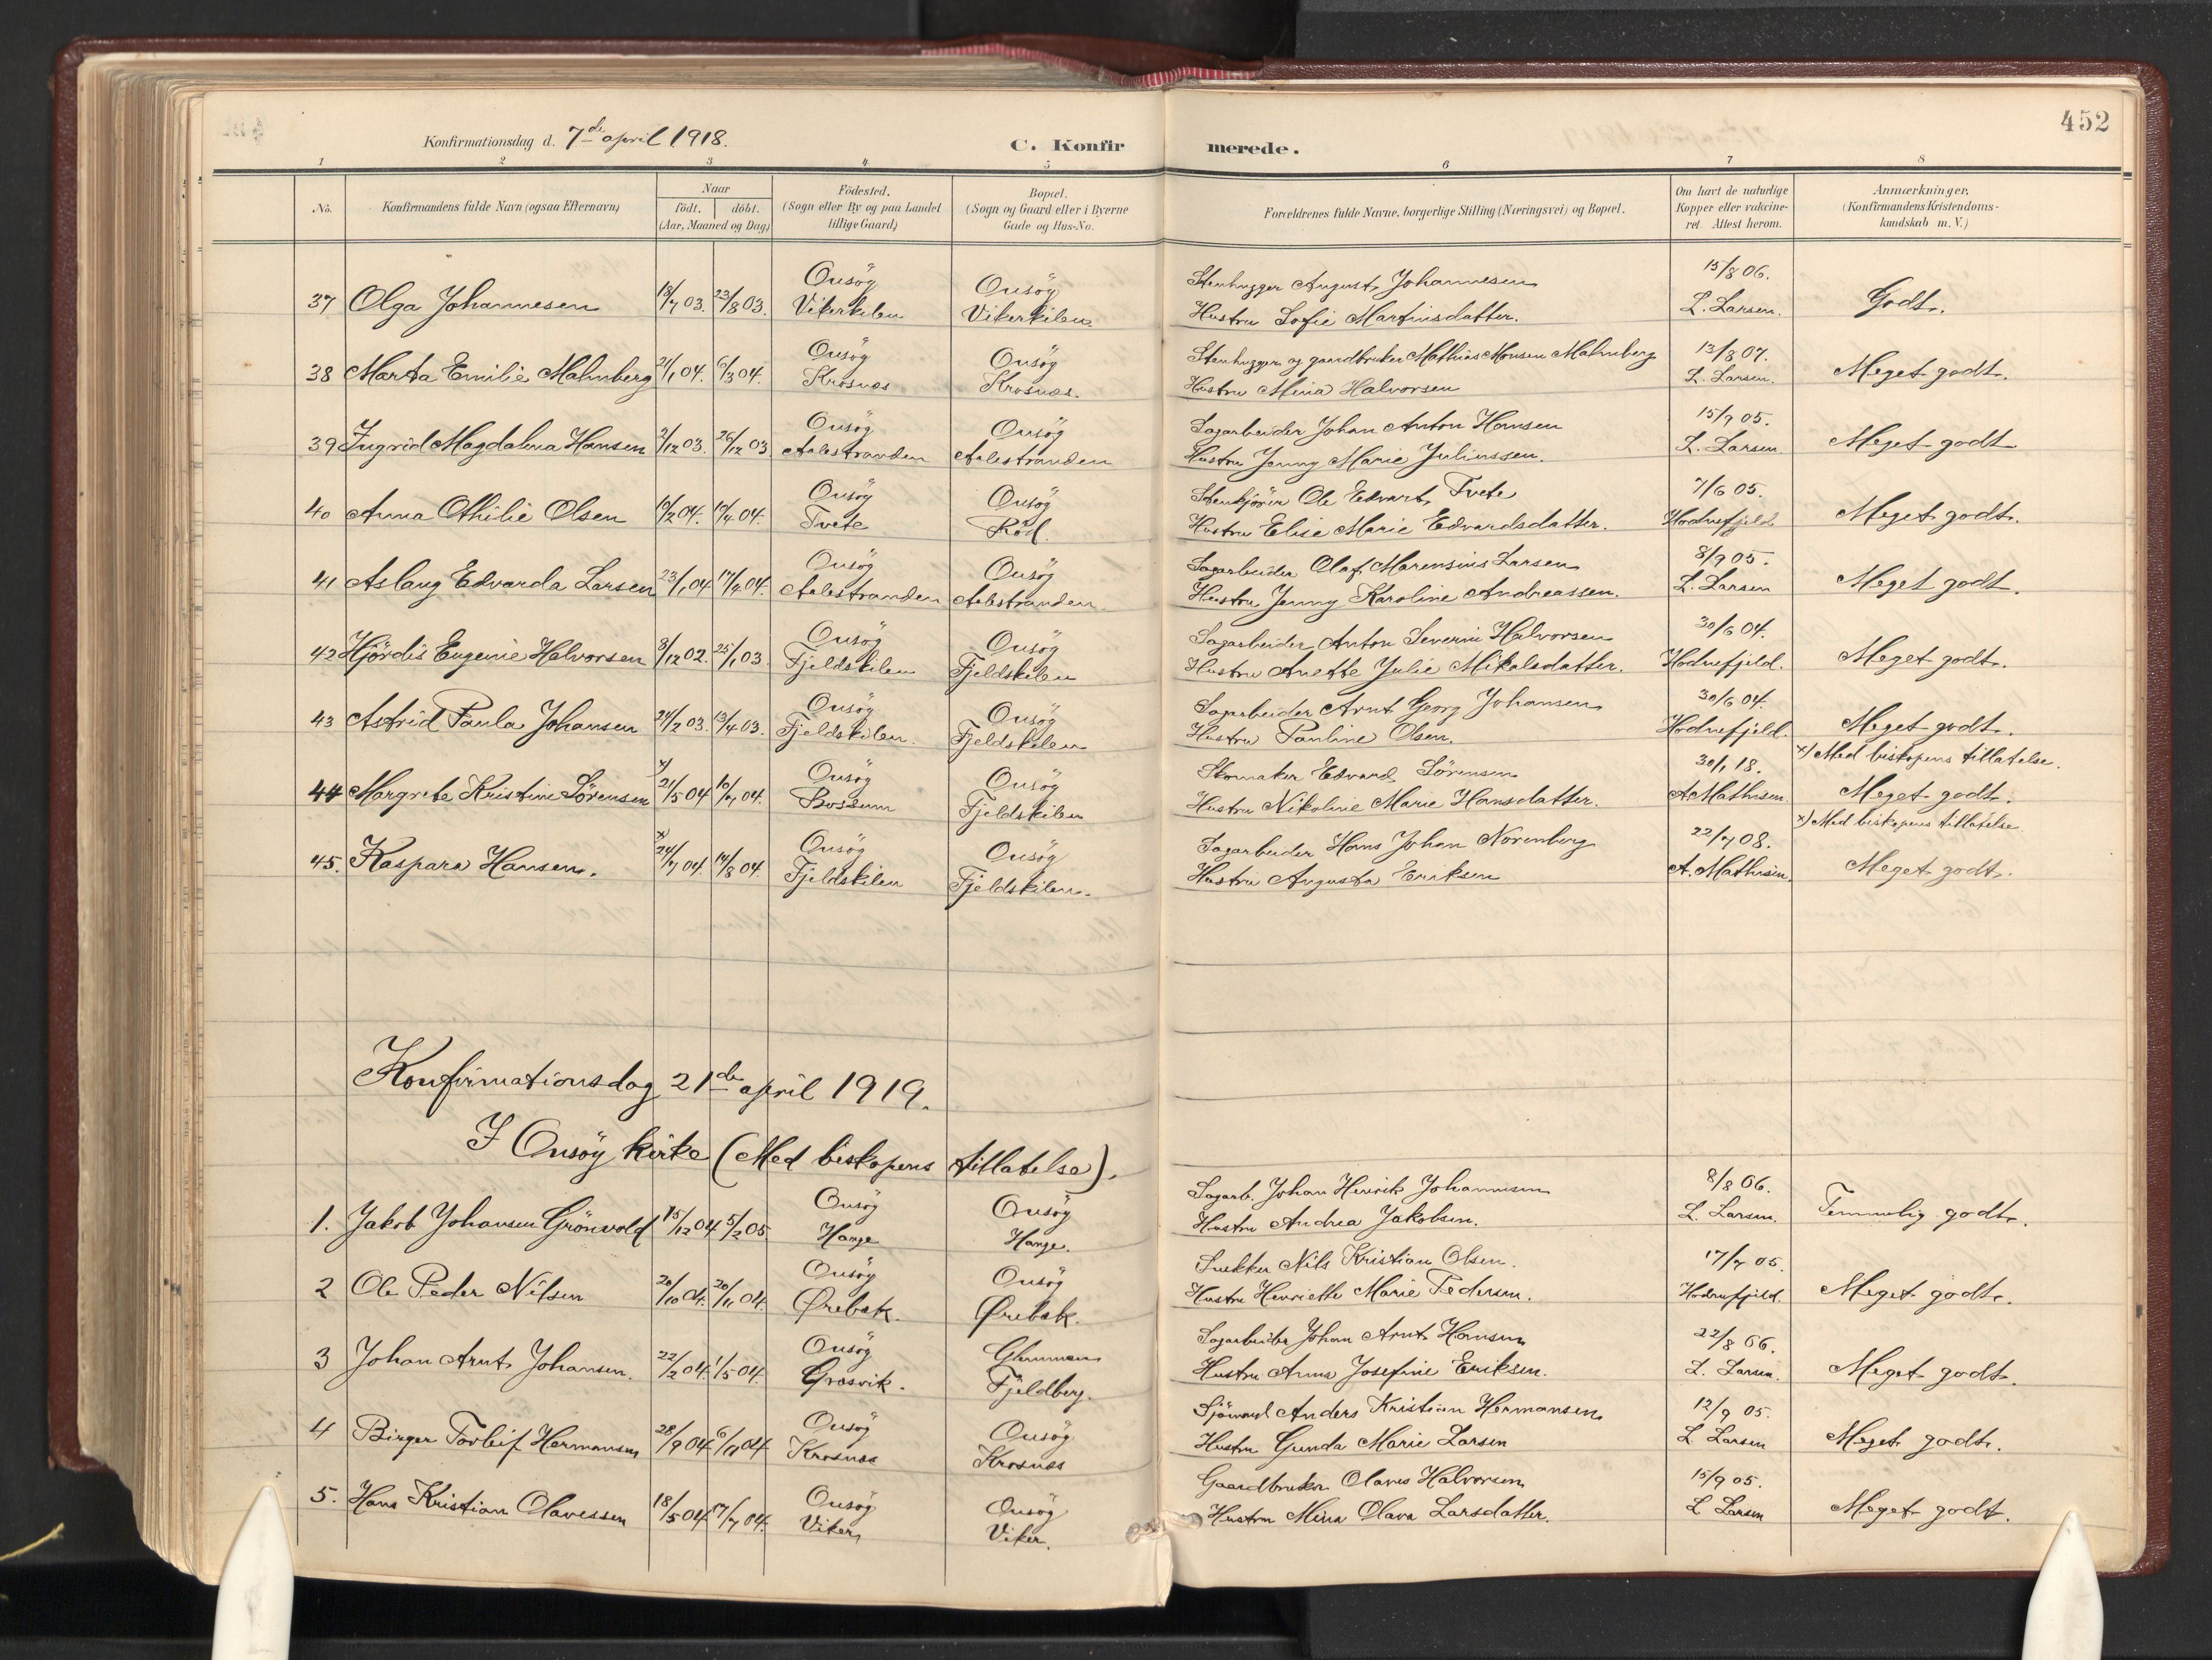 452
Konfirmationsdag d. 7de april 1918.
C. Konfirmerede.
1 2 3 4 5 6 7 8
No.
Konfirmandens fulde Navn (ogsaa Efternavn)
Naar
födt. döbt.
(Aar, Maaned og Dag)
Födested.
(Sogn eller By og paa Landet
tillige Gaard)
Bopæl.
(Sogn og Gaard eller i Byerne
Gade og Hus-No.
Forældrenes fulde Navne, borgerlige Stilling (Næringsvei) og Bopæl.
Om havt de naturlige
Kopper eller vakcine-
ret Attest herom.
Anmærkninger.
(Konfirmandens Kristendoms-
kundskab m. V.)
Onsöy Onsöy Stenhugger August Johannesen 15/8 06.
37 Olga Johannesen 18/7 03. 23/8 03. Vikerkilen Vikerkilen. Hustru Sofie Martinsdatter. L. Larsen. Godt.
Onsöy Onsöy Stenhugger og gaardbruker Mathias Monsen Malmberg 13/8 07.
38 Marta Emilie Malmberg 21/1 04. 6/3 04. Krosnæs Krosnæs. Hustru Mina Halvorsen L. Larsen. Meget godt.
Onsöy Onsöy Sagarbeider Johan Anton Hansen 15/9 05.
39 Ingrid Magdalena Hansen 2/12 03. 26/12 03. Aalestranden Aalestranden Hustru Jenny Marie Juliussen. L. Larsen Meget godt
Onsöy Onsöy Stenkjörer Ole Edvart Tvete 7/6 05.
40 Anna Othilie Olsen 19/2 04. 17/4 04. Tvete Röd. Hustru Elise Marie Edvardsdatter. Hodnefjeld Meget godt.
Onsöy Onsöy Sagarbeider Olaf Marensius Larsen 8/9 05.
41 Aslaug Edvarda Larsen 23/1 04. 17/4 04. Aalestranden Aalestranden. Hustru Jenny Karoline Andreassen. L. Larsen Meget godt.
Onsöy Onsöy Sagarbeider Anton Severin Halvorsen 30/6 04.
42 Hjördis Eugenie Halvorsen 8/12 02. 25/1 03. Fjeldskilen Fjeldskilen Hustru Anette Julie Mikalsdatter. Hodnefjeld. Meget godt.
Onsöy Onsöy Sagarbeider Arnt Georg Johansen 30/6 04.
43 Astrid Paula Johansen 24/2 03. 13/4 03. Fjeldskilen. Fjeldskilen Hustru Pauline Olsen. Hodnefjeld. Meget godt.
x) Onsöy Onsöy Skomaker Edvard Sörensen 30/1 18. x) Med biskopens tillatelse.
44 Margrete Kristine Sörensen 21/5 04 10/7 04. Bossum Fjeldskilen Hustru Nikoline Marie Hansdatter. A. Mathisen. Meget godt.
x) Onsöy Onsöy Sagarbeider Hans Johan Norenberg 22/7 08. x) Med biskopens tillatelse.
45. Kaspara Hansen. 24/7 04. 14/8 04. Fjeldskilen Fjeldskilen. Hustru Augusta Eriksen A. Mathisen. Meget godt.
Konfirmationsdag 21de april 1919.
I Onsöy kirke (Med biskopens tillatelse).
Onsöy Onsöy Sagarb. Johan Henrik Johannesen 8/8 06.
1. Jakob Johansen Grönvold 15/12 04 5/2 05. Hauge Hauge. Hustru Andrea Jakobsen. L. Larsen. Temmelig godt.
Onsöy Onsöy Snekker Nils Kristian Olsen. 17/7 05.
2 Ole Peder Nilsen 20/10 04. 20/11 04. Ørebæk. Ørebæk. Hustru Henriette Marie Pedersen. Hodnefjeld. Meget godt.
Onsöy Glemmen Sagarbeider Johan Arnt Hansen 22/8 06.
3 Johan Arnt Johansen. 22/2 04. 1/5 04. Græsvik. Fjeldberg. Hustru Anna Josefine Eriksen. L. Larsen. Meget godt.
Onsöy Onsöy Sjömand Anders Kristian Hermansen 12/9 05.
4 Birger Torleif Hermansen 28/9 04. 6/11 04 Krosnæs Krosnæs Hustru Gunda Marie Larsen L. Larsen Meget godt.
Onsöy Onsöy Gaardbruker Olaves Halvorsen 15/9 05.
5. Hans Kristian Olavessen 18/5 04. 17/7 04. Viker Viker. Hustru Mina Olava Larsdatter. L. Larsen Meget godt.